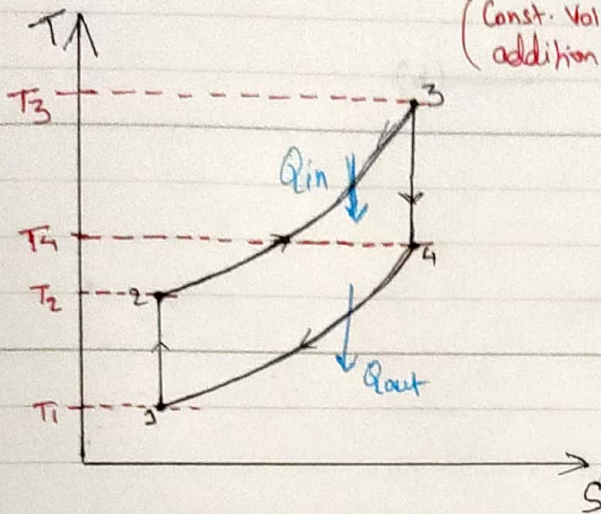 (Const. Vol
addition
T
T3
3
Qin
T4
4
T2
2
Qout
T1
1
S